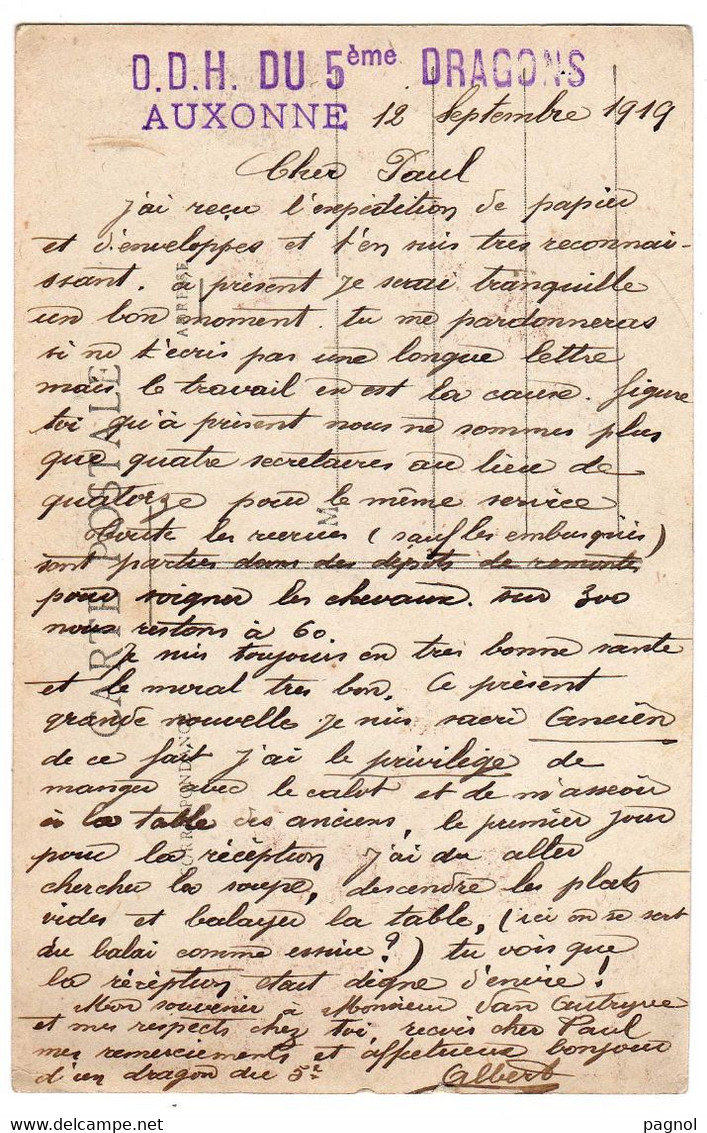 D.D.H. DU 5ème DRAGONS
AUXONNE 12 Septembre 1919
Cher Paul
j'ai reçu l'expédition de papier
et d'enveloppes et t'en suis très reconnai-
ssant. à présent je serai tranquille
un bon moment. tu me pardonneras
si ne t'écris pas une longue lettre
mais le travail en est la cause. figure
toi qu'à présent nous ne sommes plus
que quatre secrétaires au lieu de
quatorze pour le même service
toute les recrues (sauf les embusqués)
sont parties dans des dépots de remonte
pour soigner les chevaux. sur 300
nous restons à 60.
Je suis toujours en très bonne santé
et le moral très bon. Ce présent
grande nouvelle je suis sacré Ancien
de ce fait j'ai le privilège de
manger avec le calot et de m'asseoir
à la table des anciens, le premier jour
pour la réception j'ai du aller
chercher la soupe, descendre les plats
vides et balayer la table, (ici on se sert
du balai comme essuie?) tu vois que
la réception était digne d'envie!
Mon souvenir à Monsieur Van Autryve
et mes respects chez toi reçois cher Paul
mes remerciements et affectueux bonjour
d'un dragon du 5e Albert
CARTE POSTALE
CORRESPONDANCE
ADRESSE
M
pagnol